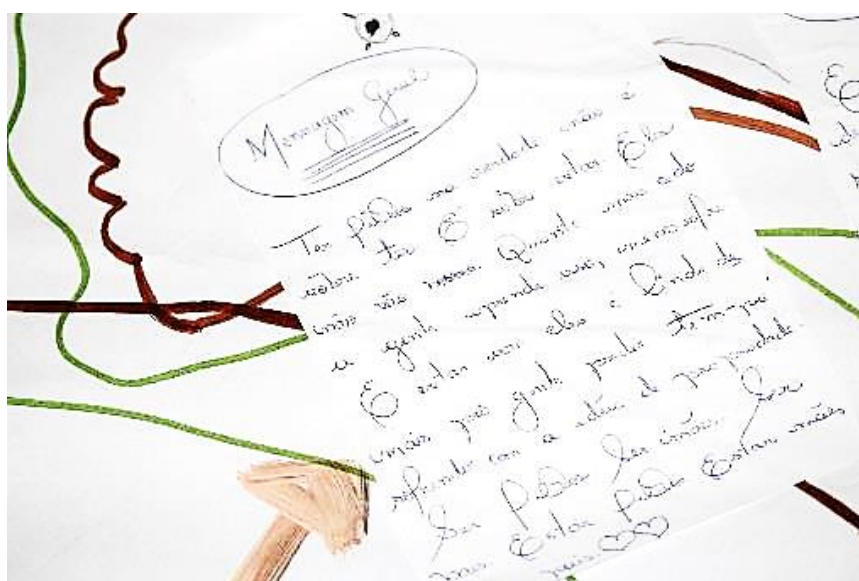 Mensagem Geral
Ter filhos na verdade não é
sobre ter É sobre estar Eles
não são nossos Quanto mais cedo
a gente aprende isso, menos sofre
E estar com eles é lindo de
mais pra gente perder tempo,
sofrendo com a ideia de propriedade.
Ser filhos Ser irmãos Ser
mas Estar filhos Estar mães
pais